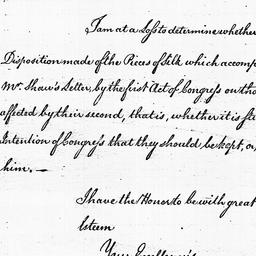 I am at a Loss to determine whether
Disposition made of the Pieces of Silk which accomp
Mr. Shaw's Letter, by the first Act of Congress on tha
affected by their second, that is, whether it is sti
Intention of Congress that they should be kept, or
him. —
I have the Honor to be with great
Esteem
Your Excellency's